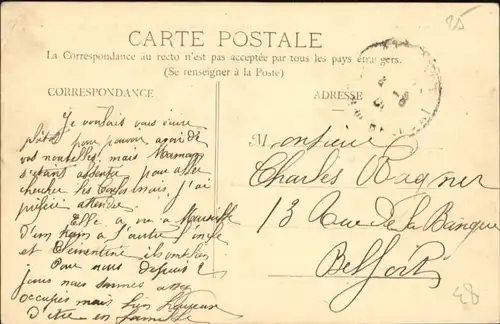 25
CARTE POSTALE
La Correspondance au recto n'est pas acceptée par tous les pays étrangers.
(Se renseigner à la Poste)
CORRESPONDANCE
ADRESSE
Je voulais vous écrire
plutôt pour pouvoir avoir de
vos nouvelles, mais Maman
s'étant absentée pour aller
chercher les mais j'ai
préféré attendre.
Elle a vu à Marseille
d'un train à l'autre
et Clémentine
Pour nous depuis 2
jours nous sommes assez
occupés mais bien heureux
d'être en famille
Monsieur
Charles Wagner
13 Rue de la Banque
Belfort